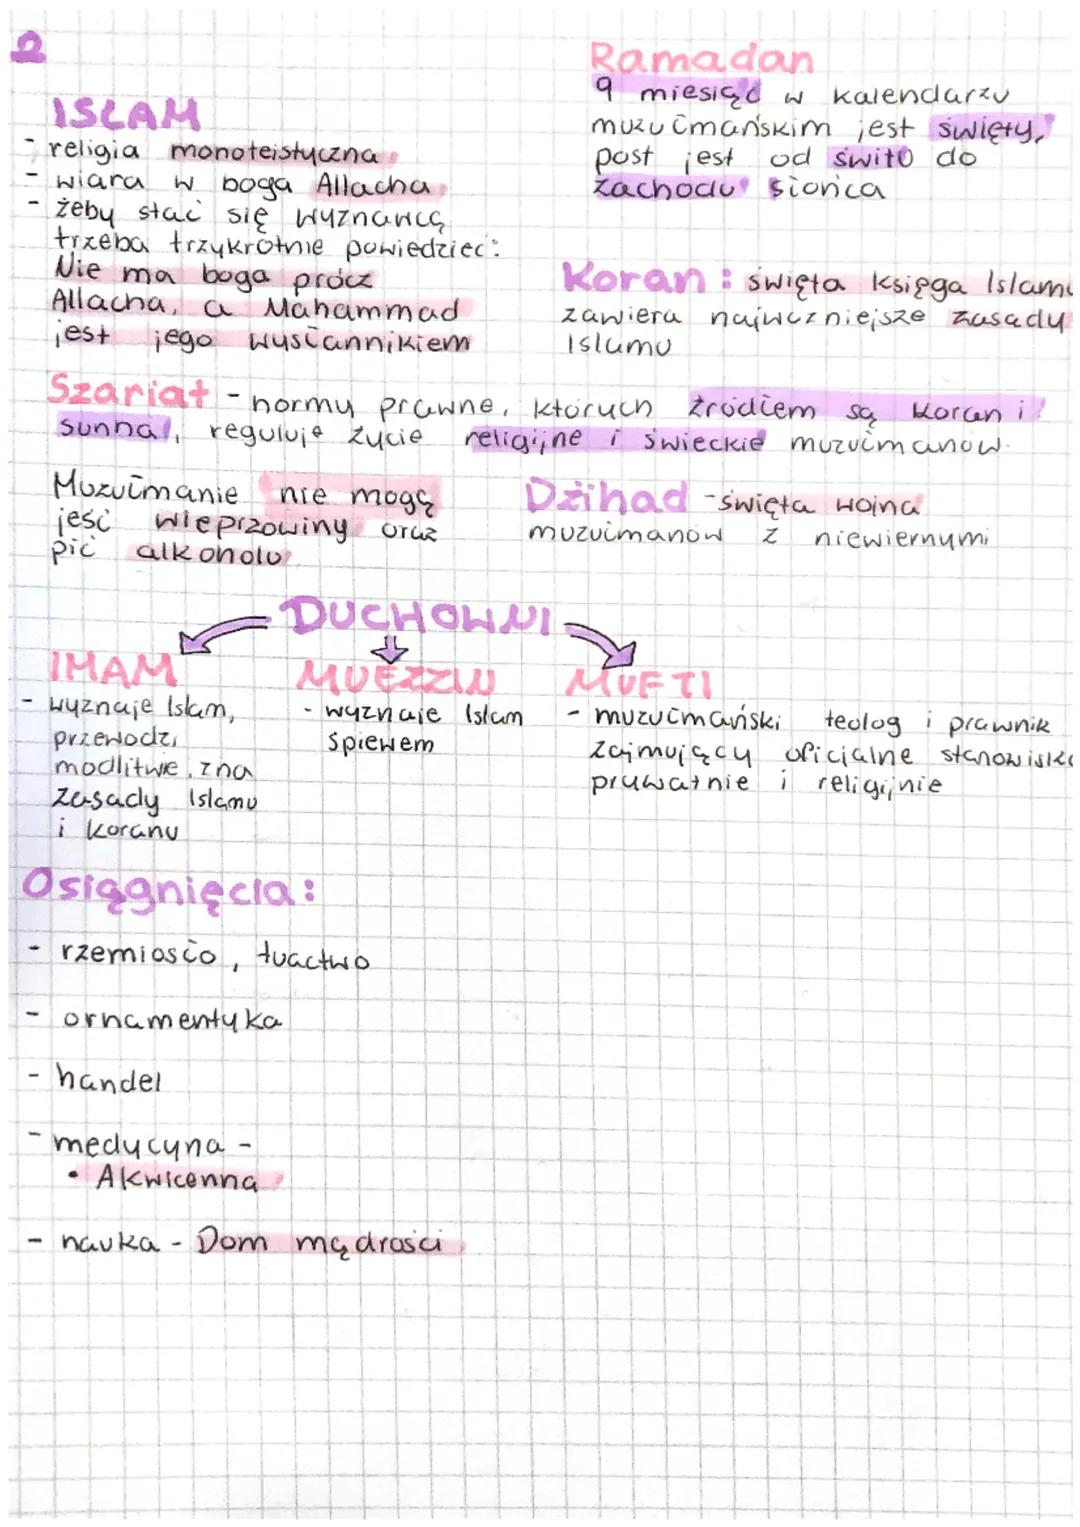 2
ISLAM
- religia monoteistyczna
- wiara w boga Allacha
- żeby stać się wyznawcą
trzeba trzykrotnie powiedzieć:
Nie ma boga prócz
Allacha, a Mahammad
jest jego wysłannikiem
Ramadan
9 miesiąc w kalendarzu
muzułmańskim jest święty,
post jest od świtu do
zachodu słońca
Koran: święta księga Islamu
zawiera najwczniejsze zasady
Islamu
Szariat - normy prawne, których źródłem są Koran i
sunna, reguluje życie religijne i świeckie muzułmanów.
Muzułmanie nie mogą
jeść wieprzowiny oraz
pić alkoholu
Dżihad - święta wojna
muzułmanów z niewiernymi
DUCHOWNI
IMAM
- wyznaje Islam,
przewodzi
modlitwie, zna
zasady Islamu
i koranu
MUEZZIN
- wyznaje Islam
śpiewem
MUFTI
- muzułmański teolog i prawnik
zajmujący oficjalne stanowisko
prywatnie i religijnie
Osiągnięcia:
- rzemiosło, tkactwo
- ornamentyka
- handel
- medycyna -
• Akwicenna
- nauka - Dom mądrości